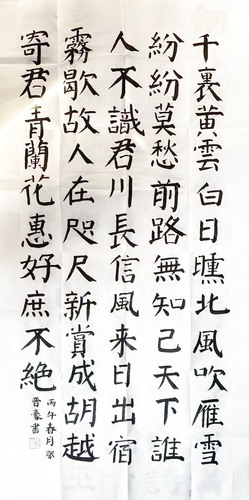 千裏黄雲白日曛北風吹雁雪
紛紛莫愁前路無知己天下誰
人不識君川長信風来日出宿
霧歇故人在咫尺新賞成胡越
寄君青蘭花惠好庶不絶
丙午春月張
晋豪書